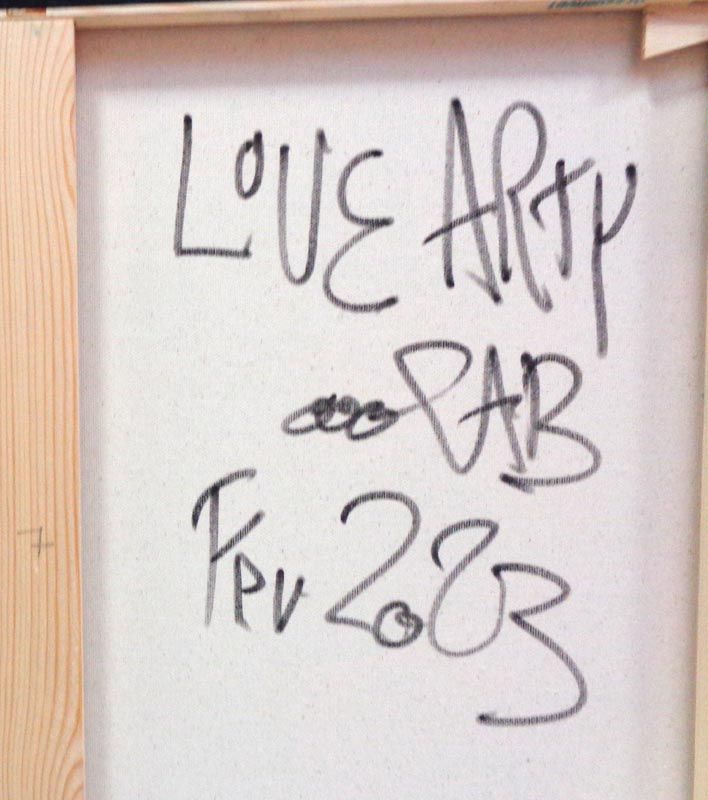 LOVE ARTY
PAB
Fev 2023